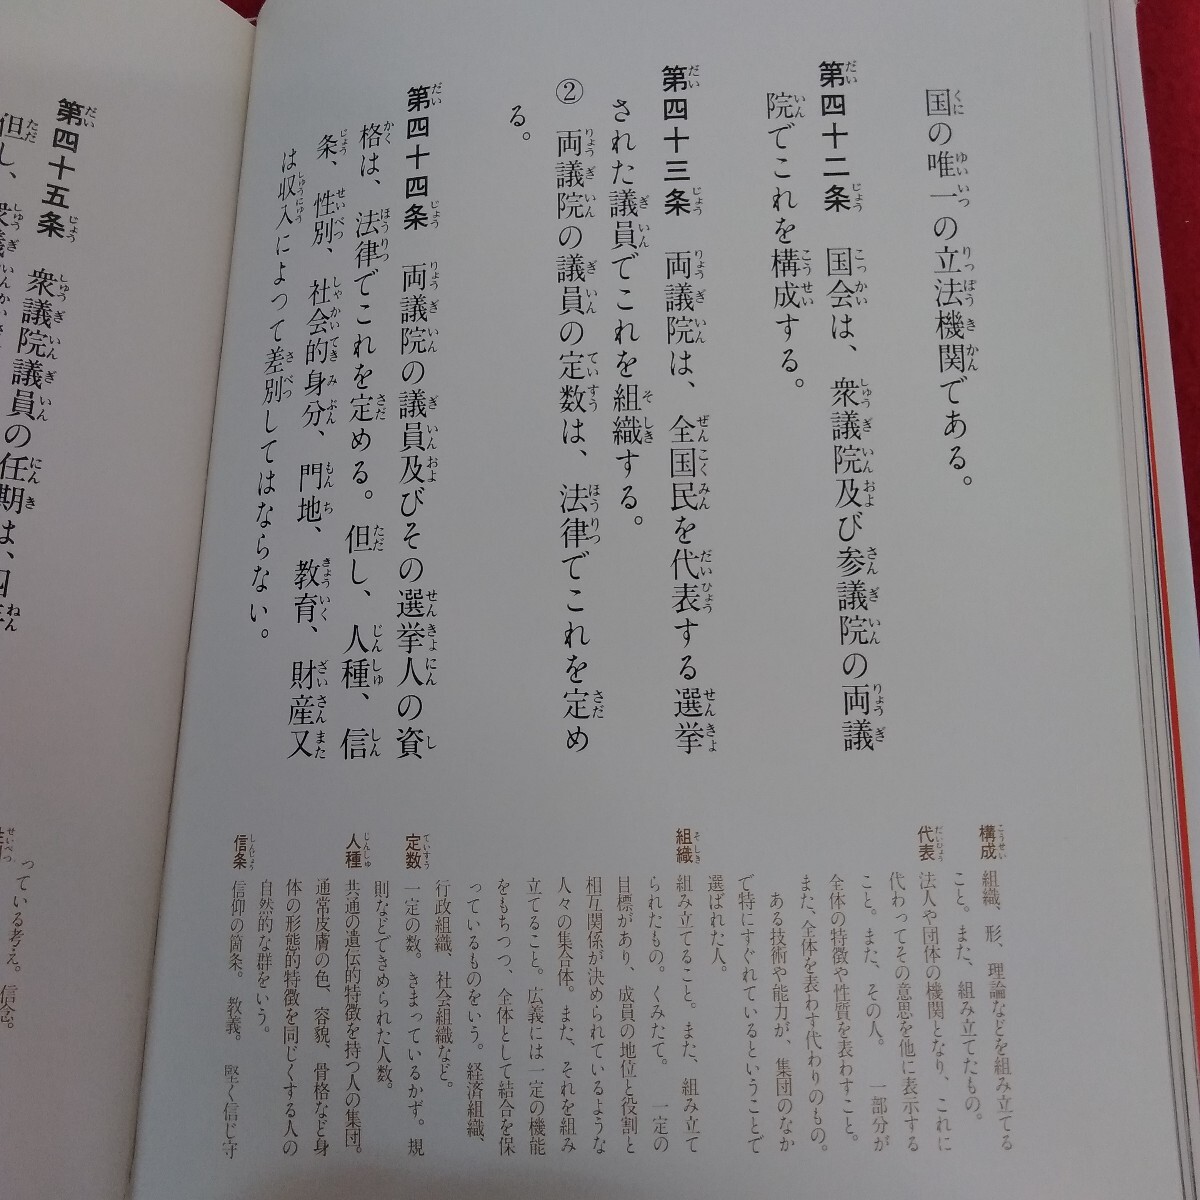 国の唯一の立法機関である。
第四十二条　国会は、衆議院及び参議院の両議
院でこれを構成する。
第四十三条　両議院は、全国民を代表する選挙
された議員でこれを組織する。
②　両議院の議員の定数は、法律でこれを定め
る。
第四十四条　両議院の議員及びその選挙人の資
格は、法律でこれを定める。但し、人種、信
条、性別、社会的身分、門地、教育、財産又
は収入によって差別してはならない。
構成　組織、形、理論などを組み立てる
こと。また、組み立てたもの。
代表　法人や団体の機関となり、これに
代わってその意思を他に表示する
こと。また、その人。　一部分が
全体の特徴や性質を表わすこと。
また、全体を表わす代わりのもの。
ある技術や能力が、集団のなか
で特にすぐれているということで
選ばれた人。
組織　組み立てること。また、組み立て
られたもの。くみたて。　一定の
目標があり、成員の地位と役割と
相互関係が決められているような
人々の集合体。また、それを組み
立てること。広義には一定の機能
をもちつつ、全体として結合を保
っているものをいう。経済組織、
行政組織、社会組織など。
定数　一定の数。きまっているかず。規
則などできめられた人数。
人種　共通の遺伝的特徴を持つ人の集団。
通常皮膚の色、容貌、骨格など身
体の形態的特徴を同じくする人の
自然的な群をいう。
信条　信仰の箇条。　教義。　堅く信じ守
第四十五条　衆議院議員の任期は、四年
但し、衆議院
っている考え。信念。
性別